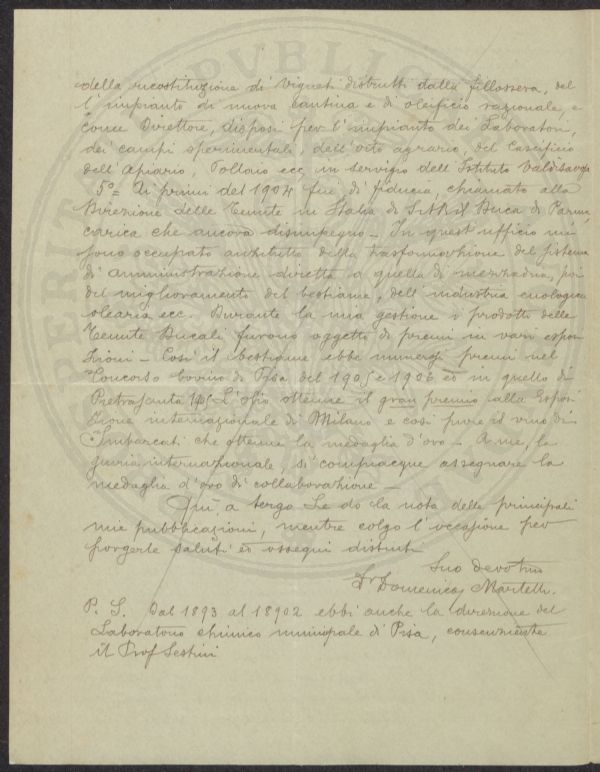 della ricostituzione di Vigneti distrutti dalla fillossera, del
l'impianto di nuova cantina e di oleificio razionale, e
come Direttore, disposi per l'impianto dei Laboratori,
dei campi sperimentali, dell'orto agrario, del Caseificio
dell'Apiario, Pollaio ecc in servizio dell'Istituto Valdisavoja
5°= Ai primi del 1904 fui di fiducia, chiamato alla
Direzione delle Tenute in Italia di S.A.R. il Duca di Parma,
carica che ancora disimpegno - In quest'ufficio mi
sono occupato anzitutto della trasformazione del sistema
di amministrazione diretta a quella di mezzadria, poi
del miglioramento del bestiame, dell'industria enologica
olearia, ecc. Durante la mia gestione i prodotti delle
Tenute Ducali furono oggetti di premi in vari espo-
sizioni - Così il bestiame ebbe numerosi premi nel
Concorso bovino di Pisa del 1905 e 1906 ed in quello di
Pietrasanta L'olio ottenne il gran premio alla Esposi
zione internazionale di Milano e così pure il vino di
Imbarcati che ottenne la medaglia d'oro - A me, la
giuria internazionale, si compiacque assegnare la
medaglia d'oro di collaborazione -
Qui, a tergo Le do la nota delle principali
mie pubblicazioni, mentre colgo l'occasione per
porgerle saluti ed ossequi distinti
Suo devotmo
Dr Domenico Martelli.
P. S. Dal 1893 al 18902 ebbi anche la direzione del
Laboratorio chimico municipale di Pisa, consenziente
il Prof Sestini